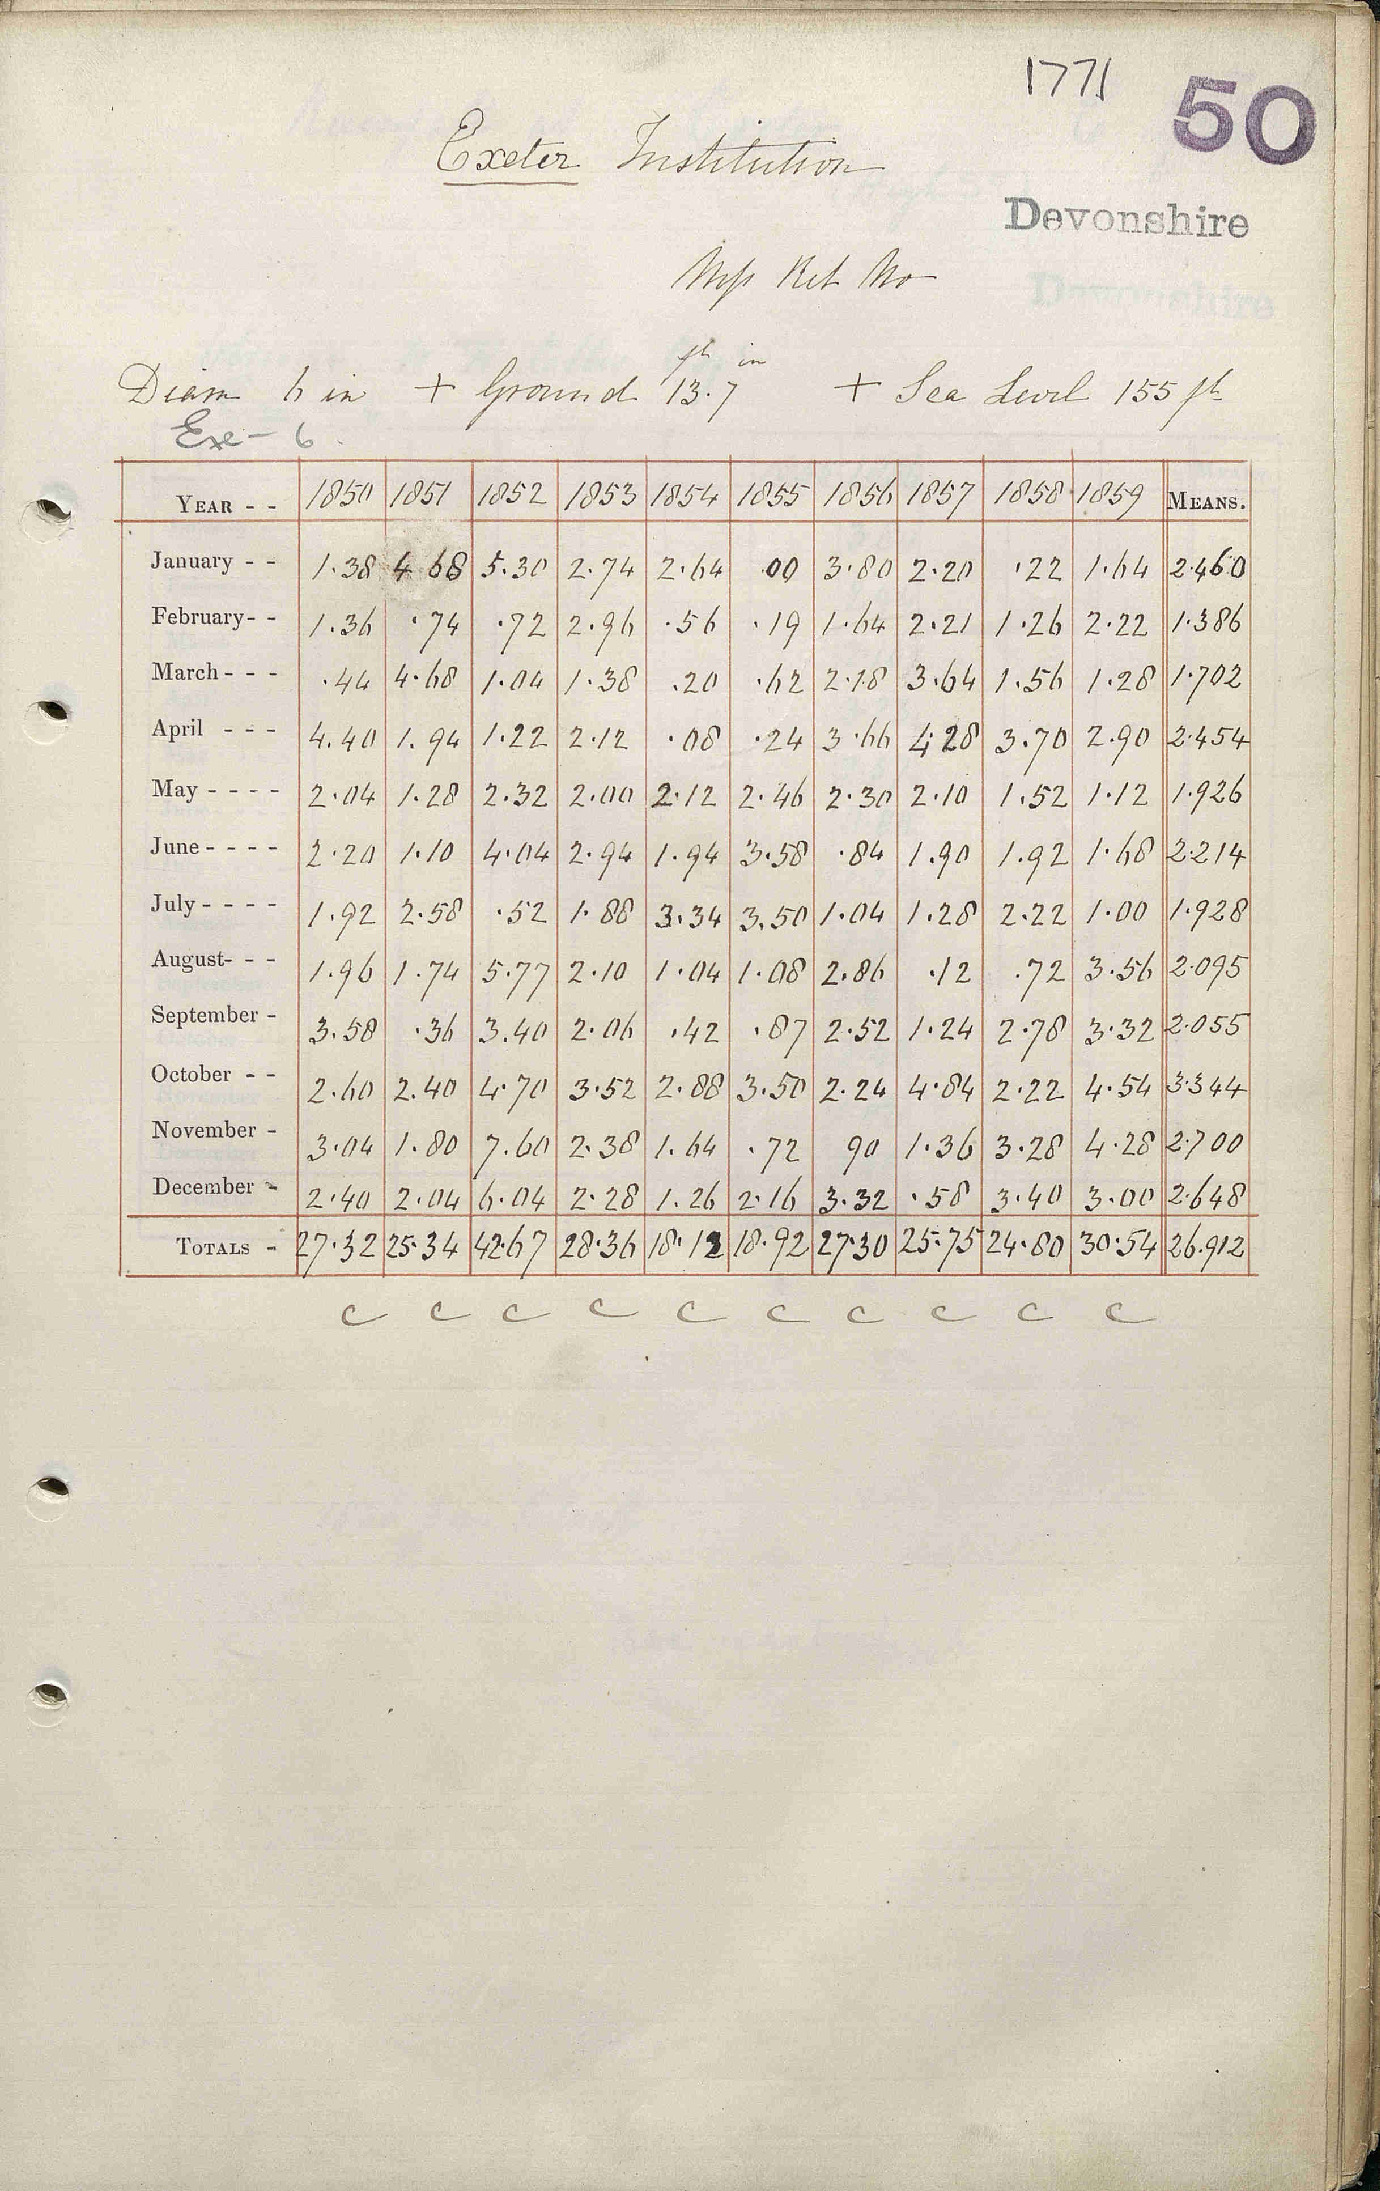 1771
50
Exeter Institution
Devonshire
Mss Ret No
ft in
Diam 6 in + Ground 13.7 + Sea Level 155 ft
Exe - 6.
YEAR - - 1850 1851 1852 1853 1854 1855 1856 1857 1858 1859 MEANS.
January - - 1.38 4.68 5.30 2.74 2.64 .00 3.80 2.20 .22 1.64 2.460
February - - 1.36 .74 .72 2.96 .56 .19 1.64 2.21 1.26 2.22 1.386
March - - - .44 4.68 1.04 1.38 .20 .62 2.18 3.64 1.56 1.28 1.702
April - - - 4.40 1.94 1.22 2.12 .08 .24 3.66 4.28 3.70 2.90 2.454
May - - - - 2.04 1.28 2.32 2.00 2.12 2.46 2.30 2.10 1.52 1.12 1.926
June - - - - 2.20 1.10 4.04 2.94 1.94 3.58 .84 1.90 1.92 1.68 2.214
July - - - - 1.92 2.58 .52 1.88 3.34 3.50 1.04 1.28 2.22 1.00 1.928
August - - - 1.96 1.74 5.77 2.10 1.04 1.08 2.86 .12 .72 3.56 2.095
September - 3.58 .36 3.40 2.06 .42 .87 2.52 1.24 2.78 3.32 2.055
October - - 2.60 2.40 4.70 3.52 2.88 3.50 2.24 4.84 2.22 4.54 3.344
November - 3.04 1.80 7.60 2.38 1.64 .72 90 1.36 3.28 4.28 2.700
December - 2.40 2.04 6.04 2.28 1.26 2.16 3.32 .58 3.40 3.00 2.648
TOTALS - 27.32 25.34 42.67 28.36 18.12 18.92 27.30 25.75 24.80 30.54 26.912
C C C C C C C C C C